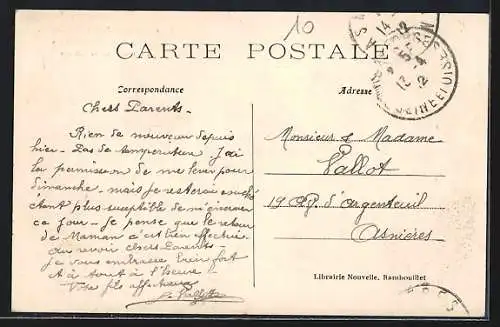 10
CARTE POSTALE
Correspondance
Adresse
Chers Parents.
Rien de nouveau depuis
hier. Pas de température J'ai
la permission de me lever pour
dimanche, mais je resterai couché
étant plus susceptible de m'énerver
ce jour. Je pense que le retour
de Maman c'est bien effectué
au revoir chers Parents
je vous embrasse bien fort
et à tout à l'heure
Votre fils affectueux
Monsieur & Madame
Pallot
19 d'Argenteuil
Asnières
Librairie Nouvelle, Rambouillet